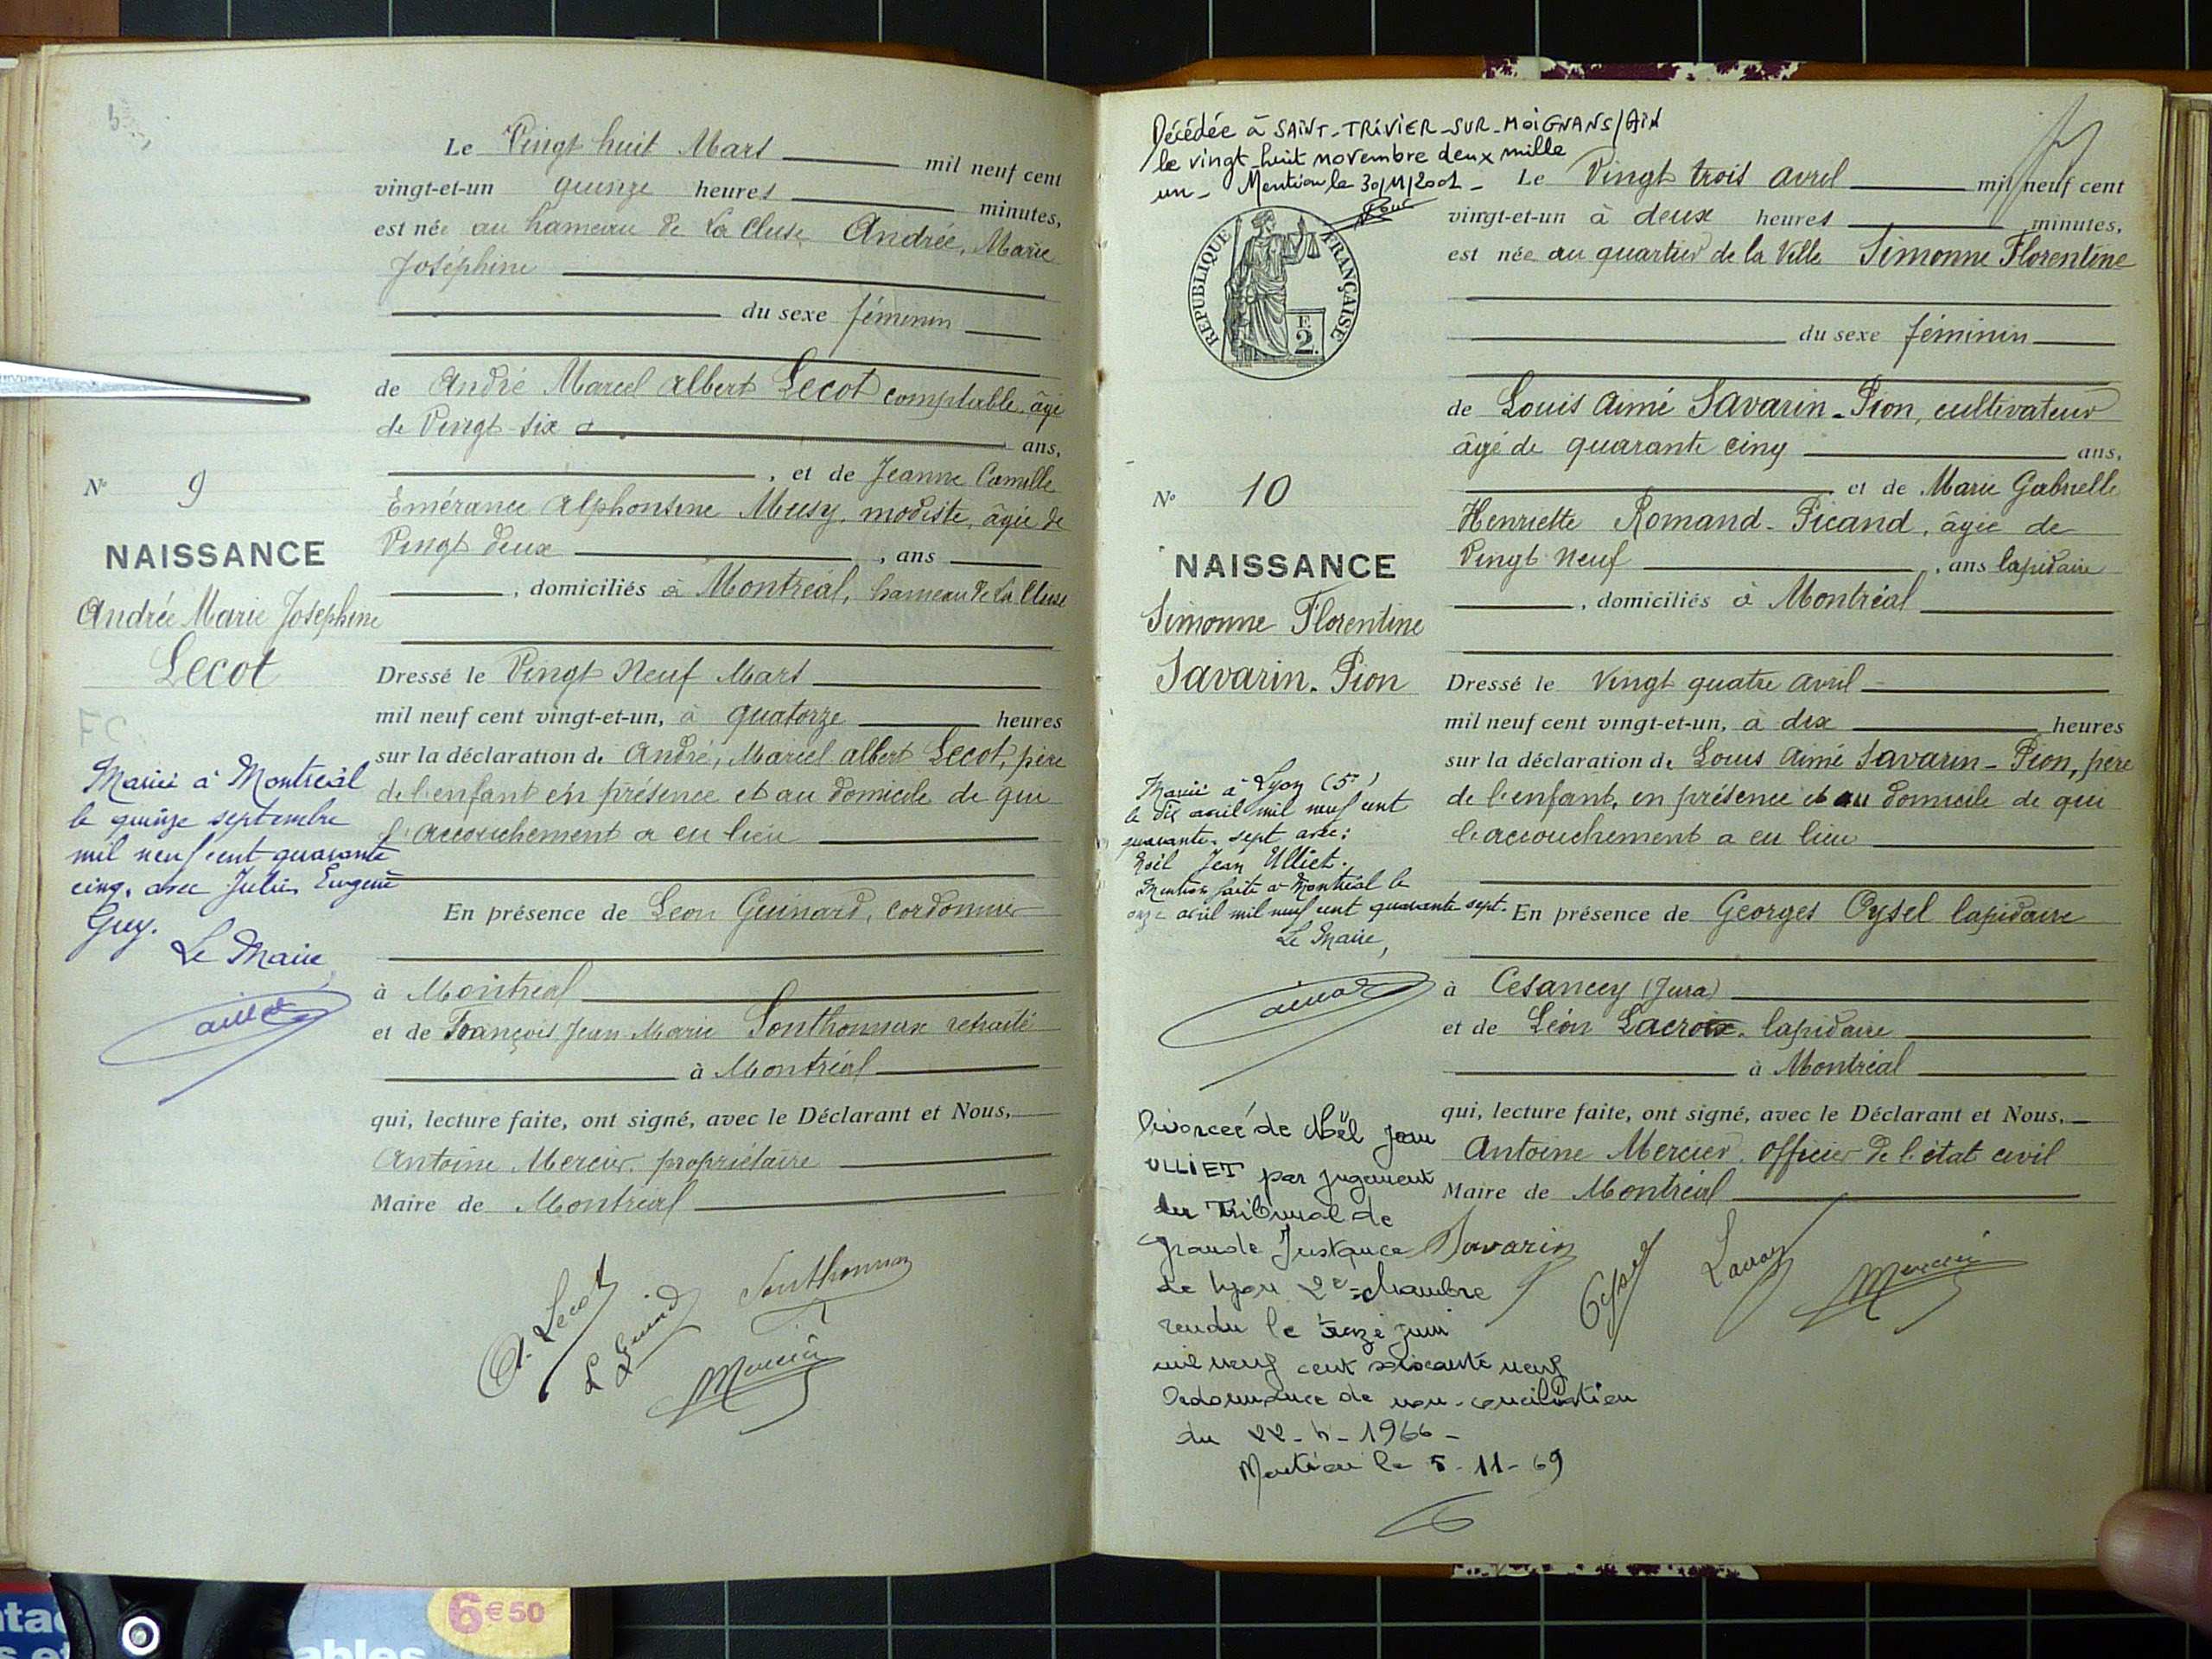 Le Vingt huit Mars mil neuf cent
vingt-et-un quinze heures minutes,
est née au hameau de La Cluse Andrée, Marie
Joséphine
du sexe féminin
de André Marcel Albert Lecot comptable âgé
de Vingt-six ans,
, et de Jeanne Camille
Emérance Alphonsine Musy, modiste, âgée de
Vingt deux , ans
, domiciliés à Montréal, hameau de La Cluse
N° 9
NAISSANCE
Andrée Marie Joséphine
Lecot
FC.
Dressé le Vingt Neuf Mars
mil neuf cent vingt-et-un, à quatorze heures
sur la déclaration de André, Marcel Albert Lecot, père
de l'enfant en présence et au domicile de qui
l'accouchement a eu lieu
En présence de Leon Guinard, cordonnier
à Montréal
et de François Jean-Marie Sonthonnax retraité
à Montréal
qui, lecture faite, ont signé, avec le Déclarant et Nous,
Antoine Mercier, propriétaire
Maire de Montréal
Mariée à Montréal
le quinze septembre
mil neuf cent quarante
cinq, avec Julien Eugène
Guy.
Le Maire,
A. Lecot
L Guinard
Sonthonnax
Mercier
Décédée à SAINT-TRIVIER-SUR-MOIGNANS/AIN
le vingt-huit novembre deux mille
un - Mention le 30/11/2001 -
RÉPUBLIQUE FRANÇAISE
F
2.
Le Vingt trois avril mil neuf cent
vingt-et-un à deux heures minutes,
est née au quartier de la Ville Simonne Florentine
du sexe féminin
de Louis Aimé Savarin-Pion, cultivateur
âgé de quarante cinq ans,
et de Marie Gabrielle
Henriette Romand-Picand, âgée de
Vingt Neuf , ans lapidaire
, domiciliés à Montréal
N° 10
NAISSANCE
Simonne Florentine
Savarin-Pion
Dressé le Vingt quatre avril
mil neuf cent vingt-et-un, à dix heures
sur la déclaration de Louis Aimé Savarin-Pion, père
de l'enfant, en présence et au domicile de qui
l'accouchement a eu lieu
En présence de Georges Oysel lapidaire
à Cesancey (Jura)
et de Léon Lacroix, lapidaire
à Montréal
qui, lecture faite, ont signé, avec le Déclarant et Nous,
Antoine Mercier, officier de l'état civil
Maire de Montréal
Mariée à Lyon (5e)
le dix avril mil neuf cent
quarante-sept avec:
Noël Jean Ulliet.
Mention faite à Montréal le
onze avril mil neuf cent quarante sept.
Le Maire,
Divorcée de Noël Jean
ULLIET par jugement
du Tribunal de
Grande Instance
de Lyon 2e Chambre
rendu le treize juin
mil neuf cent soixante neuf
Ordonnance de non-conciliation
du 22-4-1966 -
Mention le 5-11-69
Savarin
Oysel
Lacroix
Mercier
6€50